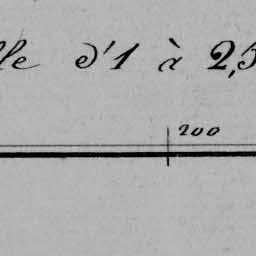 lle d'1 à 2,5
200